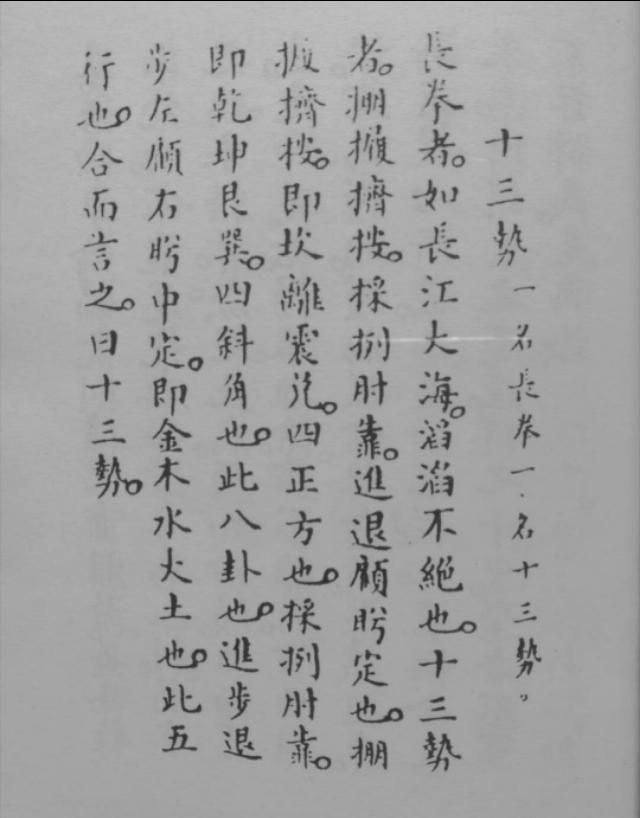 十三勢 一名長拳一名十三勢。
長拳者。如長江大海。滔滔不絶也。十三勢
者。掤履擠按。採挒肘靠。進退顧盻定也。掤
履擠按。即坎離震兌。四正方也。採挒肘靠。
即乾坤艮巽。四斜角也。此八卦也。進步退
步左顧右盻中定。即金木水火土也。此五
行也。合而言之。曰十三勢。